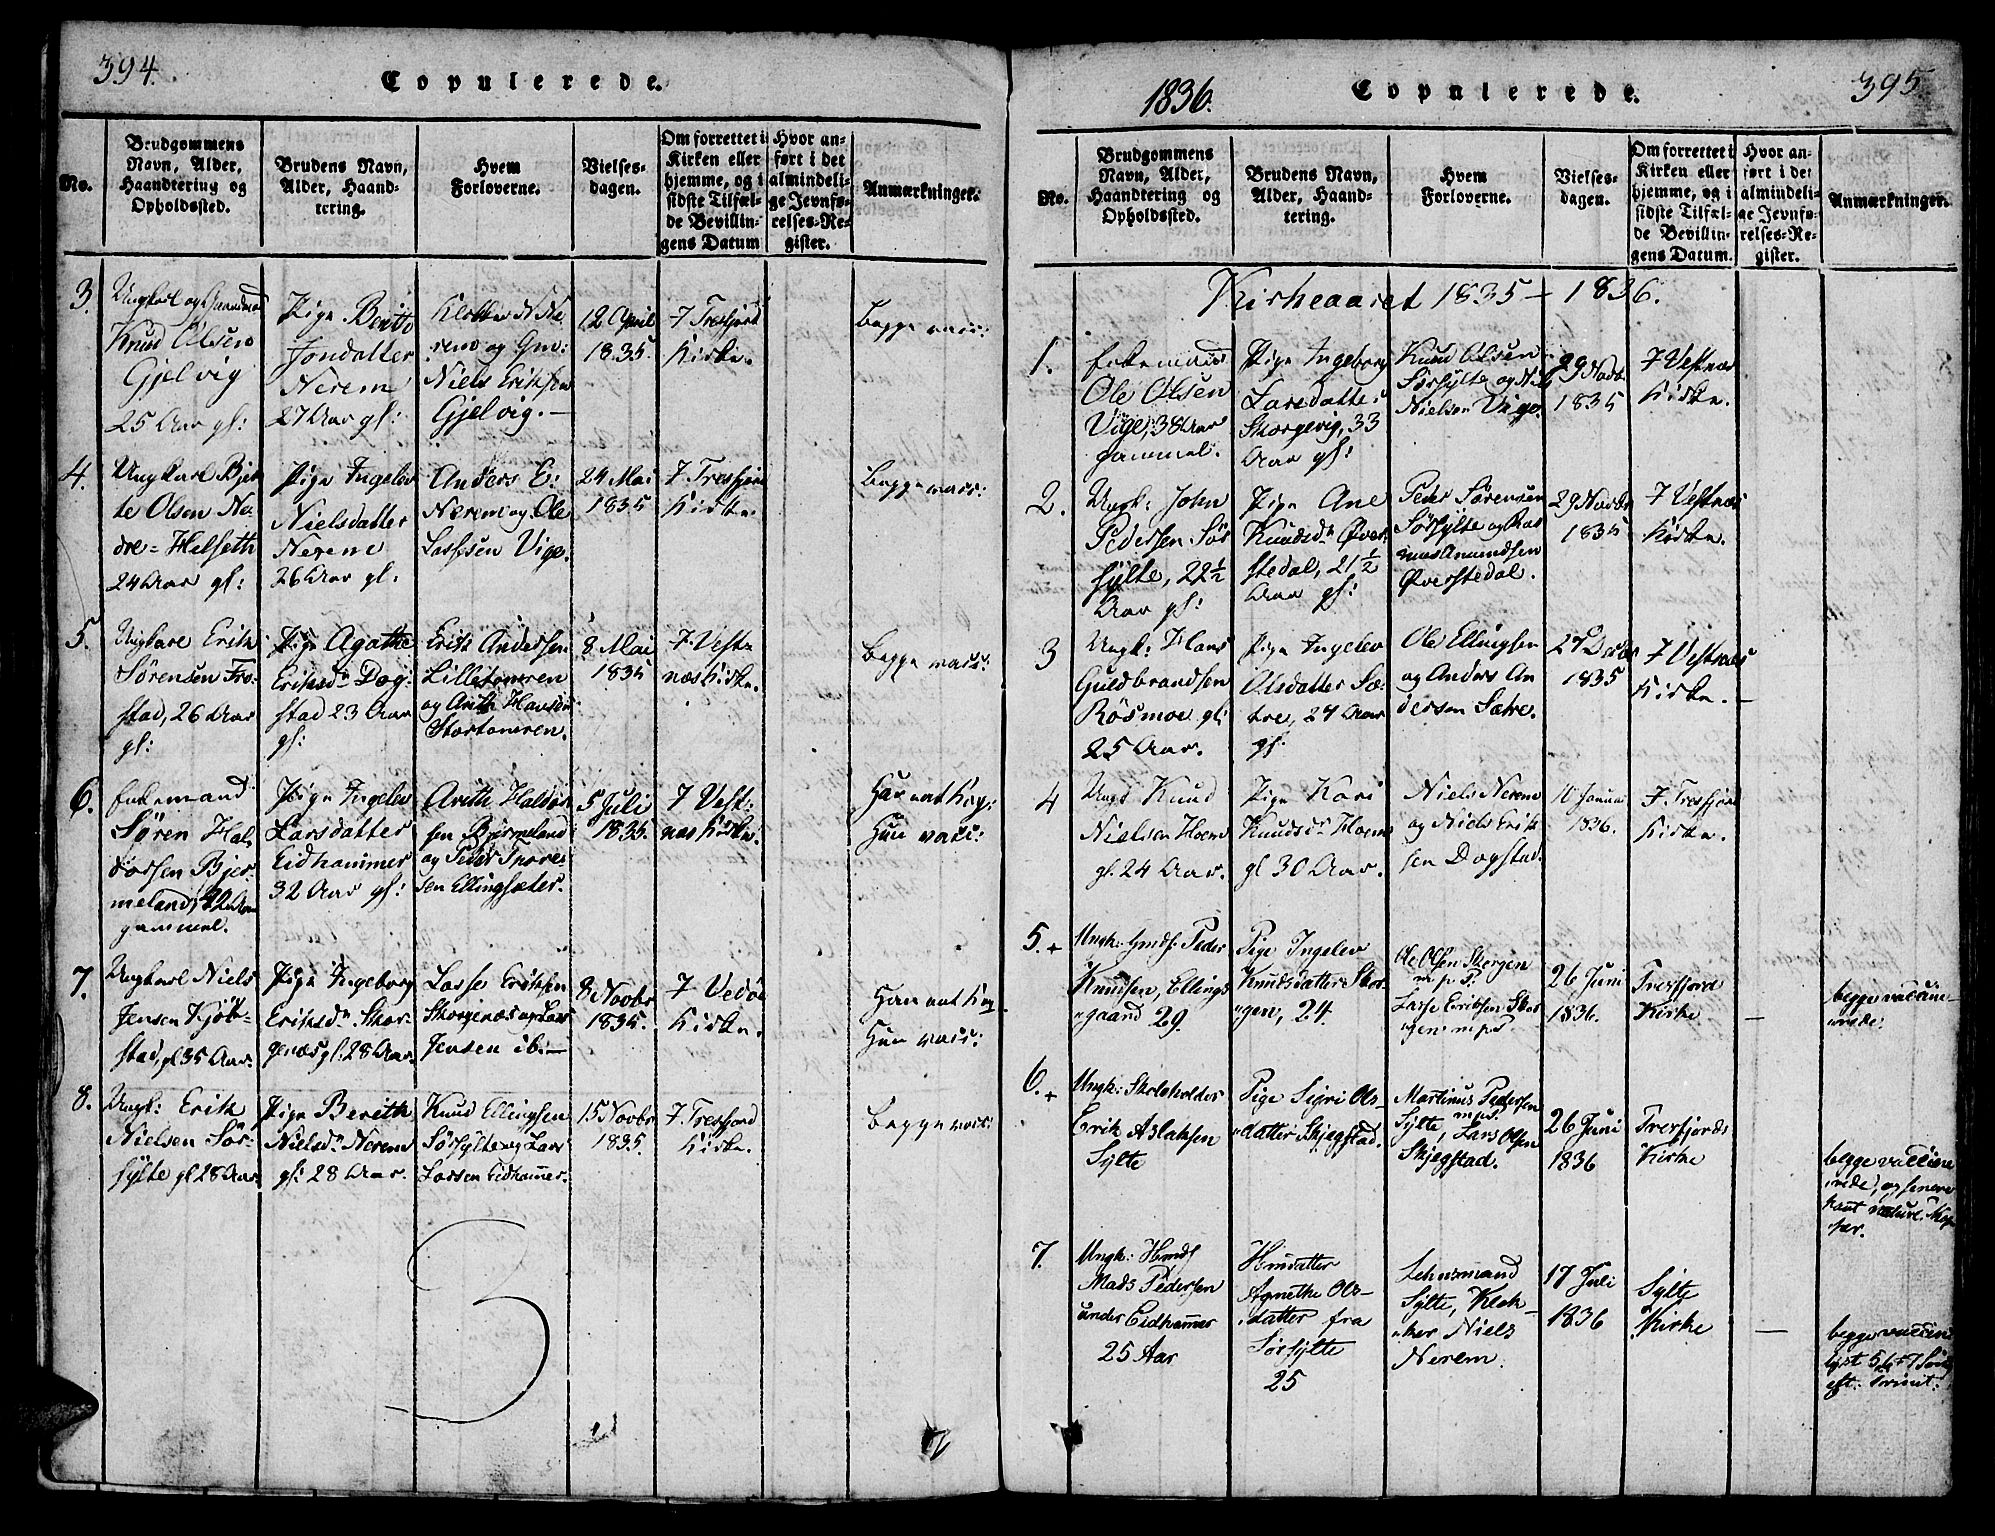 394.
Copulerede.
No.
Brudgommens
Navn, Alder,
Haandtering og
Opholdssted.
Brudens Navn,
Alder, Haand-
tering.
Hvem
Forloverne.
Vielses-
dagen.
Om forrettet i
Kirken eller
hjemme, og i
sidste Tilfæl-
de Bevillin-
gens Datum
Hvor an-
ført i det
almindeli-
ge Jevnfø-
relses-Re-
gister.
Anmærkninger.
3.
Ungkarl og Gaardmand
Knud Olsen
Gjelvig
25 Aar gl:
Pige Berith
Jondatter
Nerem
27 Aar gl:
Klokker N. Ne-
rem og Gm:
Niels Eriksen
Gjelvig.—
12 April
1835.
I Tresfjord
Kirke.
Begge vacc:
4.
Ungkarl Bjer-
te Olsen Ne-
dre-Helseth
24 Aar gl:
Pige Ingelev
Nielsdatter
Nerem
26 Aar gl.
Anders E:
Nerem og Ole
Lassesen Vige.
24 Mai
1835
I Tresfjord
Kirke.
Begge vacc:
5.
Ungkarl Erik
Sørensen Fro-
stad, 26 Aar
gl:
Pige Agathe
Eriksdr Dag-
stad 23 Aar
gl:
Erik Andersen
Lilletomren
og Arith Hansen
Stortomren.
8 Mai
1835
I Vest-
næs Kirke.
Begge vacc:
6.
Enkemand
Søren Hal-
dorsen Bjer-
meland,
gammel.
Pige Ingelev
Larsdatter
Eidhammer
32 Aar gl:
Arith Haldor-
sen Bjermeland
og Peder Thore-
sen Ellingsæter.
5 Juli
1835.
I Vest-
næs Kirke.
Han nat Kop:
Hun vacc:
7.
Ungkarl Niels
Jensen Kjøb-
stad, gl 35 Aar.
Pige Ingeborg
Eriksdr Skor-
genæs gl: 28 Aar.
Lasse Eriksen
Skorgenæs og Lars
Jensen ib:—
8 Novbr
1835.
I Vedø
Kirke.
Han nat Kop
Hun vacc:
8.
Ungk: Erik
Nielsen Sør-
sylte gl 28 Aar.
Pige Berith
Nielsdr Nerem
gl: 28 Aar.
Knud Ellingsen
Sørsylte og Lars
Larsen Eidhammer.
15 Novbr
1835.
I Tresfjord
Kirke.
Begge vacc:
3
1836.
Copulerede.
395
No.
Brudgommens
Navn, Alder,
Haandtering og
Opholdssted.
Brudens Navn,
Alder, Haand-
tering.
Hvem
Forloverne.
Vielses-
dagen.
Om forrettet i
Kirken eller
hjemme, og i
sidste Tilfæl-
de Bevillin-
gens Datum.
Hvor an-
ført i det
almindeli-
ge Jevnfø-
relses-Re-
gister.
Anmærkninger.
Kirkeaaret 1835—1836.
1.
Enkemand
Ole Olsen
Vige, 38 Aar
gammel.
Pige Ingeborg
Larsdatter
Skorgevig, 33
Aar gl:
Knud Olsen
Sørsylte og Nils
Nielsen Vige.
29 Novbr
1835
I Vestnæs
Kirke.
2.
Ungk: John
Pedersen Sør-
sylte, 22½
Aar gl:
Pige Ane
Knudsdr Øver-
stedal, 21½
Aar gl:
Peder Sørensen
Sørsylte og Ras-
mus Amundsen
Øverstedal.
29 Novbr
1835
I Vestnæs
Kirke.
3
Ungk: Hans
Guldbrandsen
Rösmoe gl:
25 Aar.
Pige Ingelev
Olsdatter Sæ-
tre, 27 Aar
gl.
Ole Ellingsen
og Anders An-
dersen Sætre.
27 Decbr
1835
I Vestnæs
Kirke.—
4
Ungk Knud
Nielsen Hoem
gl. 24 Aar.
Pige Kari
Knudsdr Hoem
gl 30 Aar.
Niels Nerem
og Niels Erik-
sen Dagstad.
10 Januar
1836.
I Tresfjord
Kirke.
5.+
Ungk: Peder
Knudsen, Ellings-
gaard 29.
Pige Ingelev
Knudsdatter Skor-
gen, 24.
Ole Olsen Skorgen
m. p. P.
Lasse Eriksen Skor-
gen m.p.s
26 Juni
1836.
Tresfjord
Kirke
—
begge vaccine-
rede.
6.+
Ungk: Skoleholder
Erik Aslaksen
Sylte
Pige Sigri Ols-
datter Skjegstad.
Martinus Pedersen
m.p.s.
Sylte, Lars Olsen
Skjegstad.
26 Juni
1836
Tresfjords
Kirke
begge vaccine-
rede, og senere
havt naturl. Kop-
per.
7.
Ungk:
Mads Pedersen
under Eidhammer
25 Aar
Agnethe Ols-
datter fra
Sørsylte
25
Lehnsmand
Sylte, Klok-
ker Niels
Nerem.
17 Juli
1836
Sylte
Kirke
—
begge vaccine
lyst 5 6 & 7 Sønd
eft: Trinit: